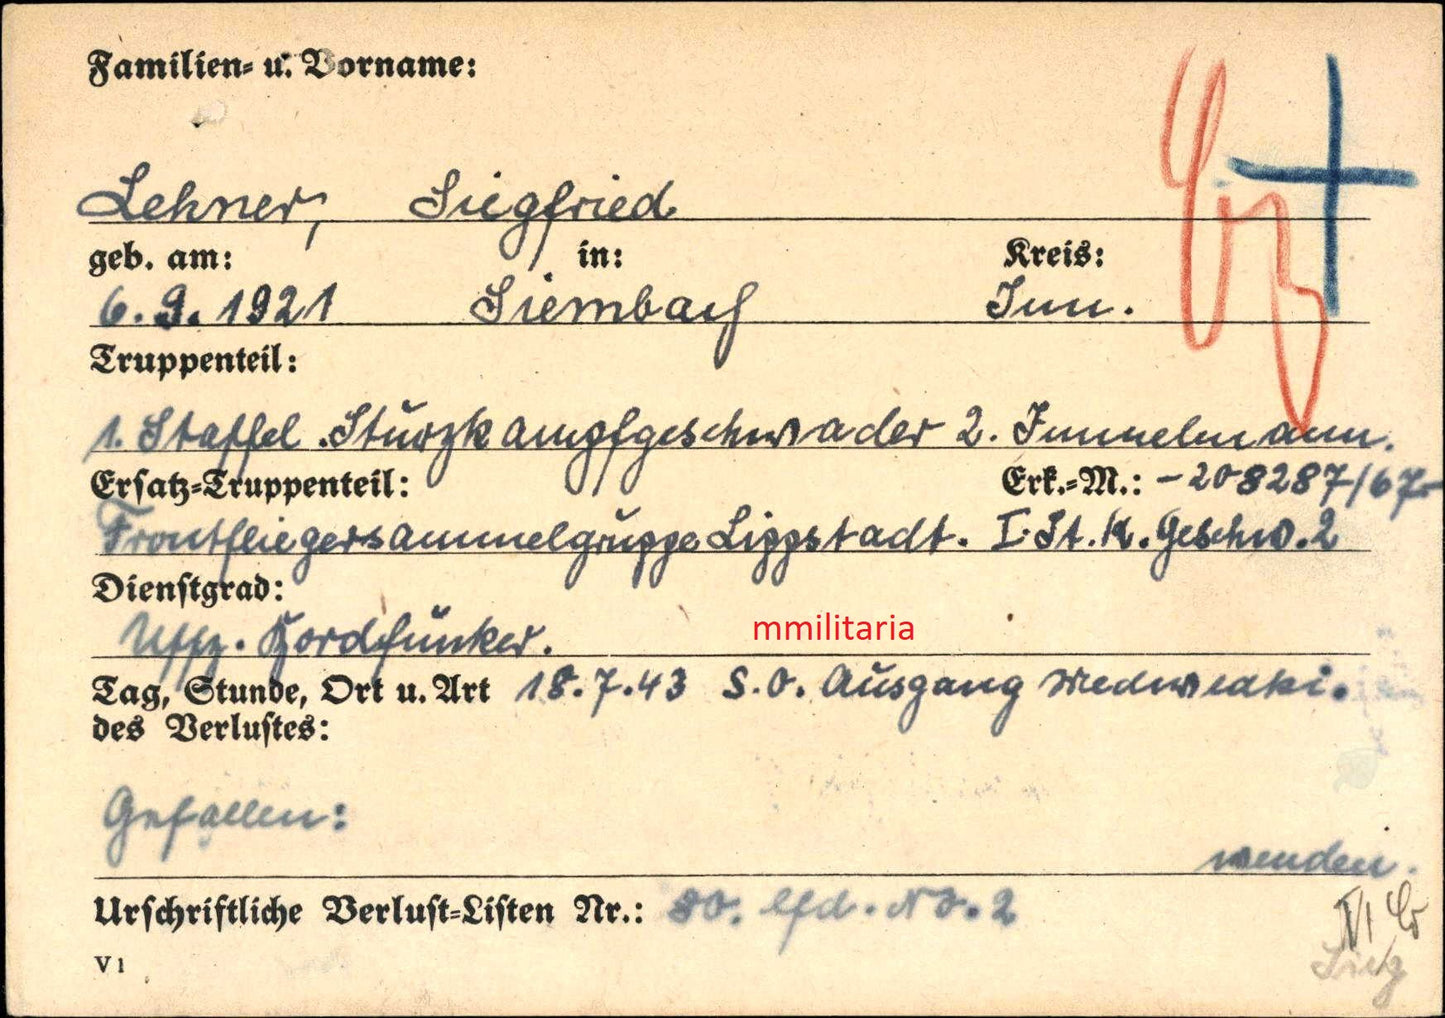 Familien- u. Vorname:
Lehner, Siegfried
geb. am: in: Kreis:
6.9.1921 Siembach Inn.
Truppenteil:
1. Staffel. Sturzkampfgeschwader 2. Immelmann.
Ersatz-Truppenteil: Erk.-M.: -208287/67-
Frontfliegersammelgruppe Lippstadt. I. St. K. Geschw. 2
Dienstgrad:
Uffz. Bordfunker.
mmilitaria
Tag, Stunde, Ort u. Art 18.7.43 S.O. Ausgang
des Verlustes:
Gefallen:
wenden.
Urschriftliche Verlust-Listen Nr.: 80. lfd. No. 2
V 1